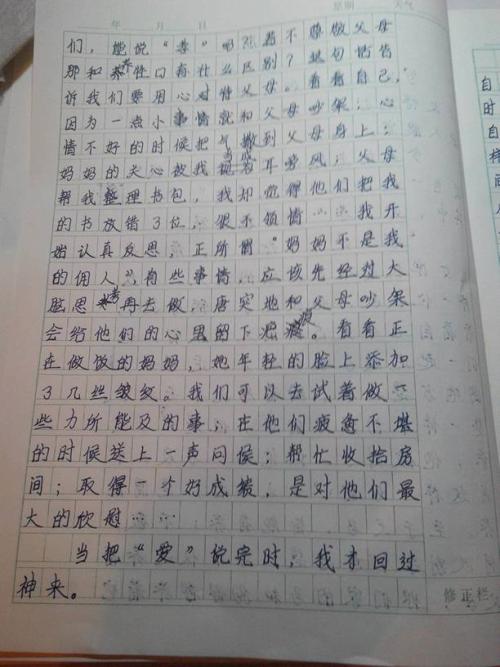 年 月 日 星期 天气
们，能说“孝”吗？若不尊敬父母
那和养牲口有什么区别？这句话告
诉我们要用心对待父母。看看自己，
因为一点小事情就和父母吵架；心
情不好的时候把气撒到父母身上；
妈妈的关心被我当成耳旁风；父母
帮我整理书包，我却觉得他们把我
的书放错了位，很不领情……我开
始认真反思，正所谓“妈妈不是我
的佣人”，有些事情，应该先经过大
脑思考再去做，唐突地和父母吵架
会给他们的心里留下疤痕。看看正
在做饭的妈妈，她年轻的脸上添加
了几丝皱纹。我们可以去试着做一
些力所能及的事；在他们疲惫不堪
的时候送上一声问候；帮忙收拾房
间；取得一个好成绩，是对他们最
大的欣慰……
当把“爱”说完时，我才回过
神来。
修正栏
自
时
自